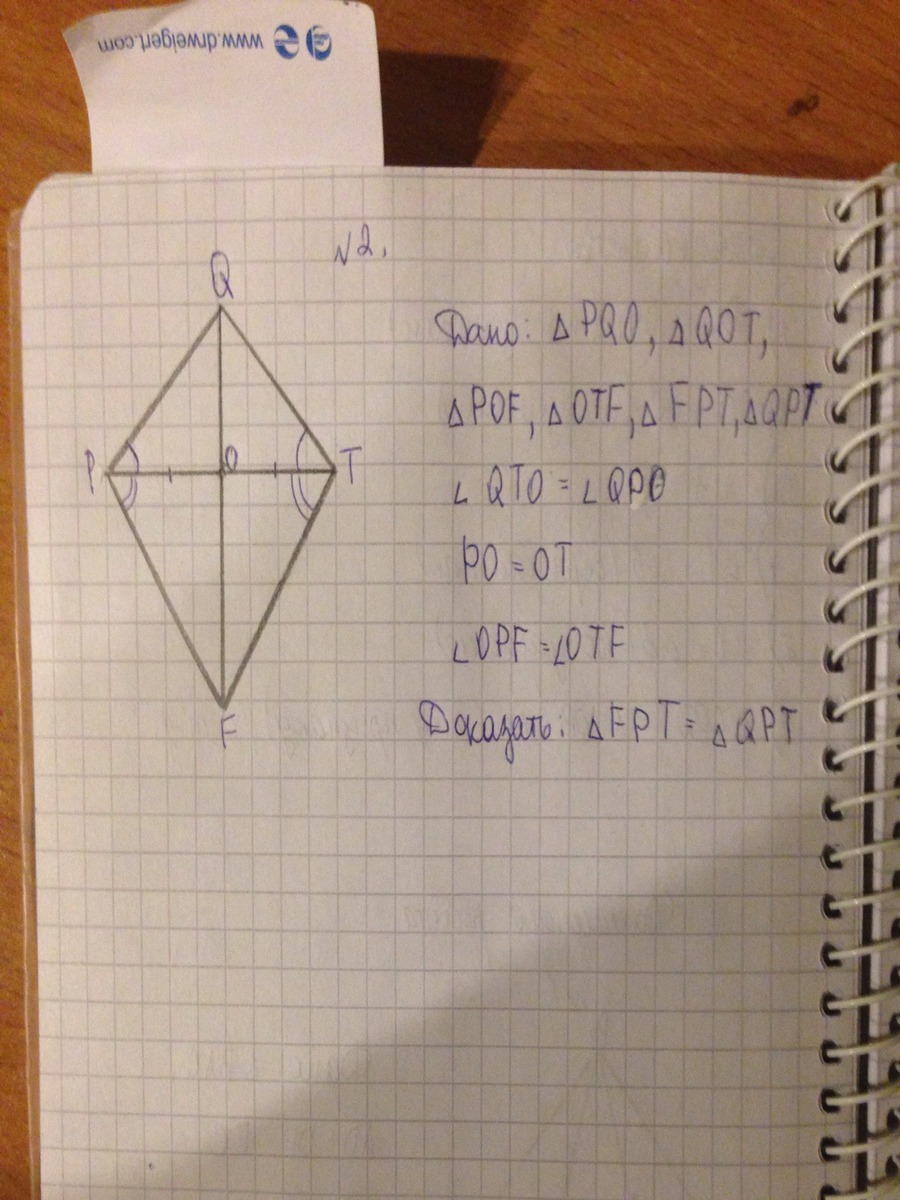 www.drweigert.com
№2.
Q
P
O
T
F
Дано: △PQO, △QOT,
△POF, △OTF, △FPT, △QPT
∠QTO = ∠QPO
PO = OT
∠OPF = ∠OTF
Доказать: △FPT = △QPT